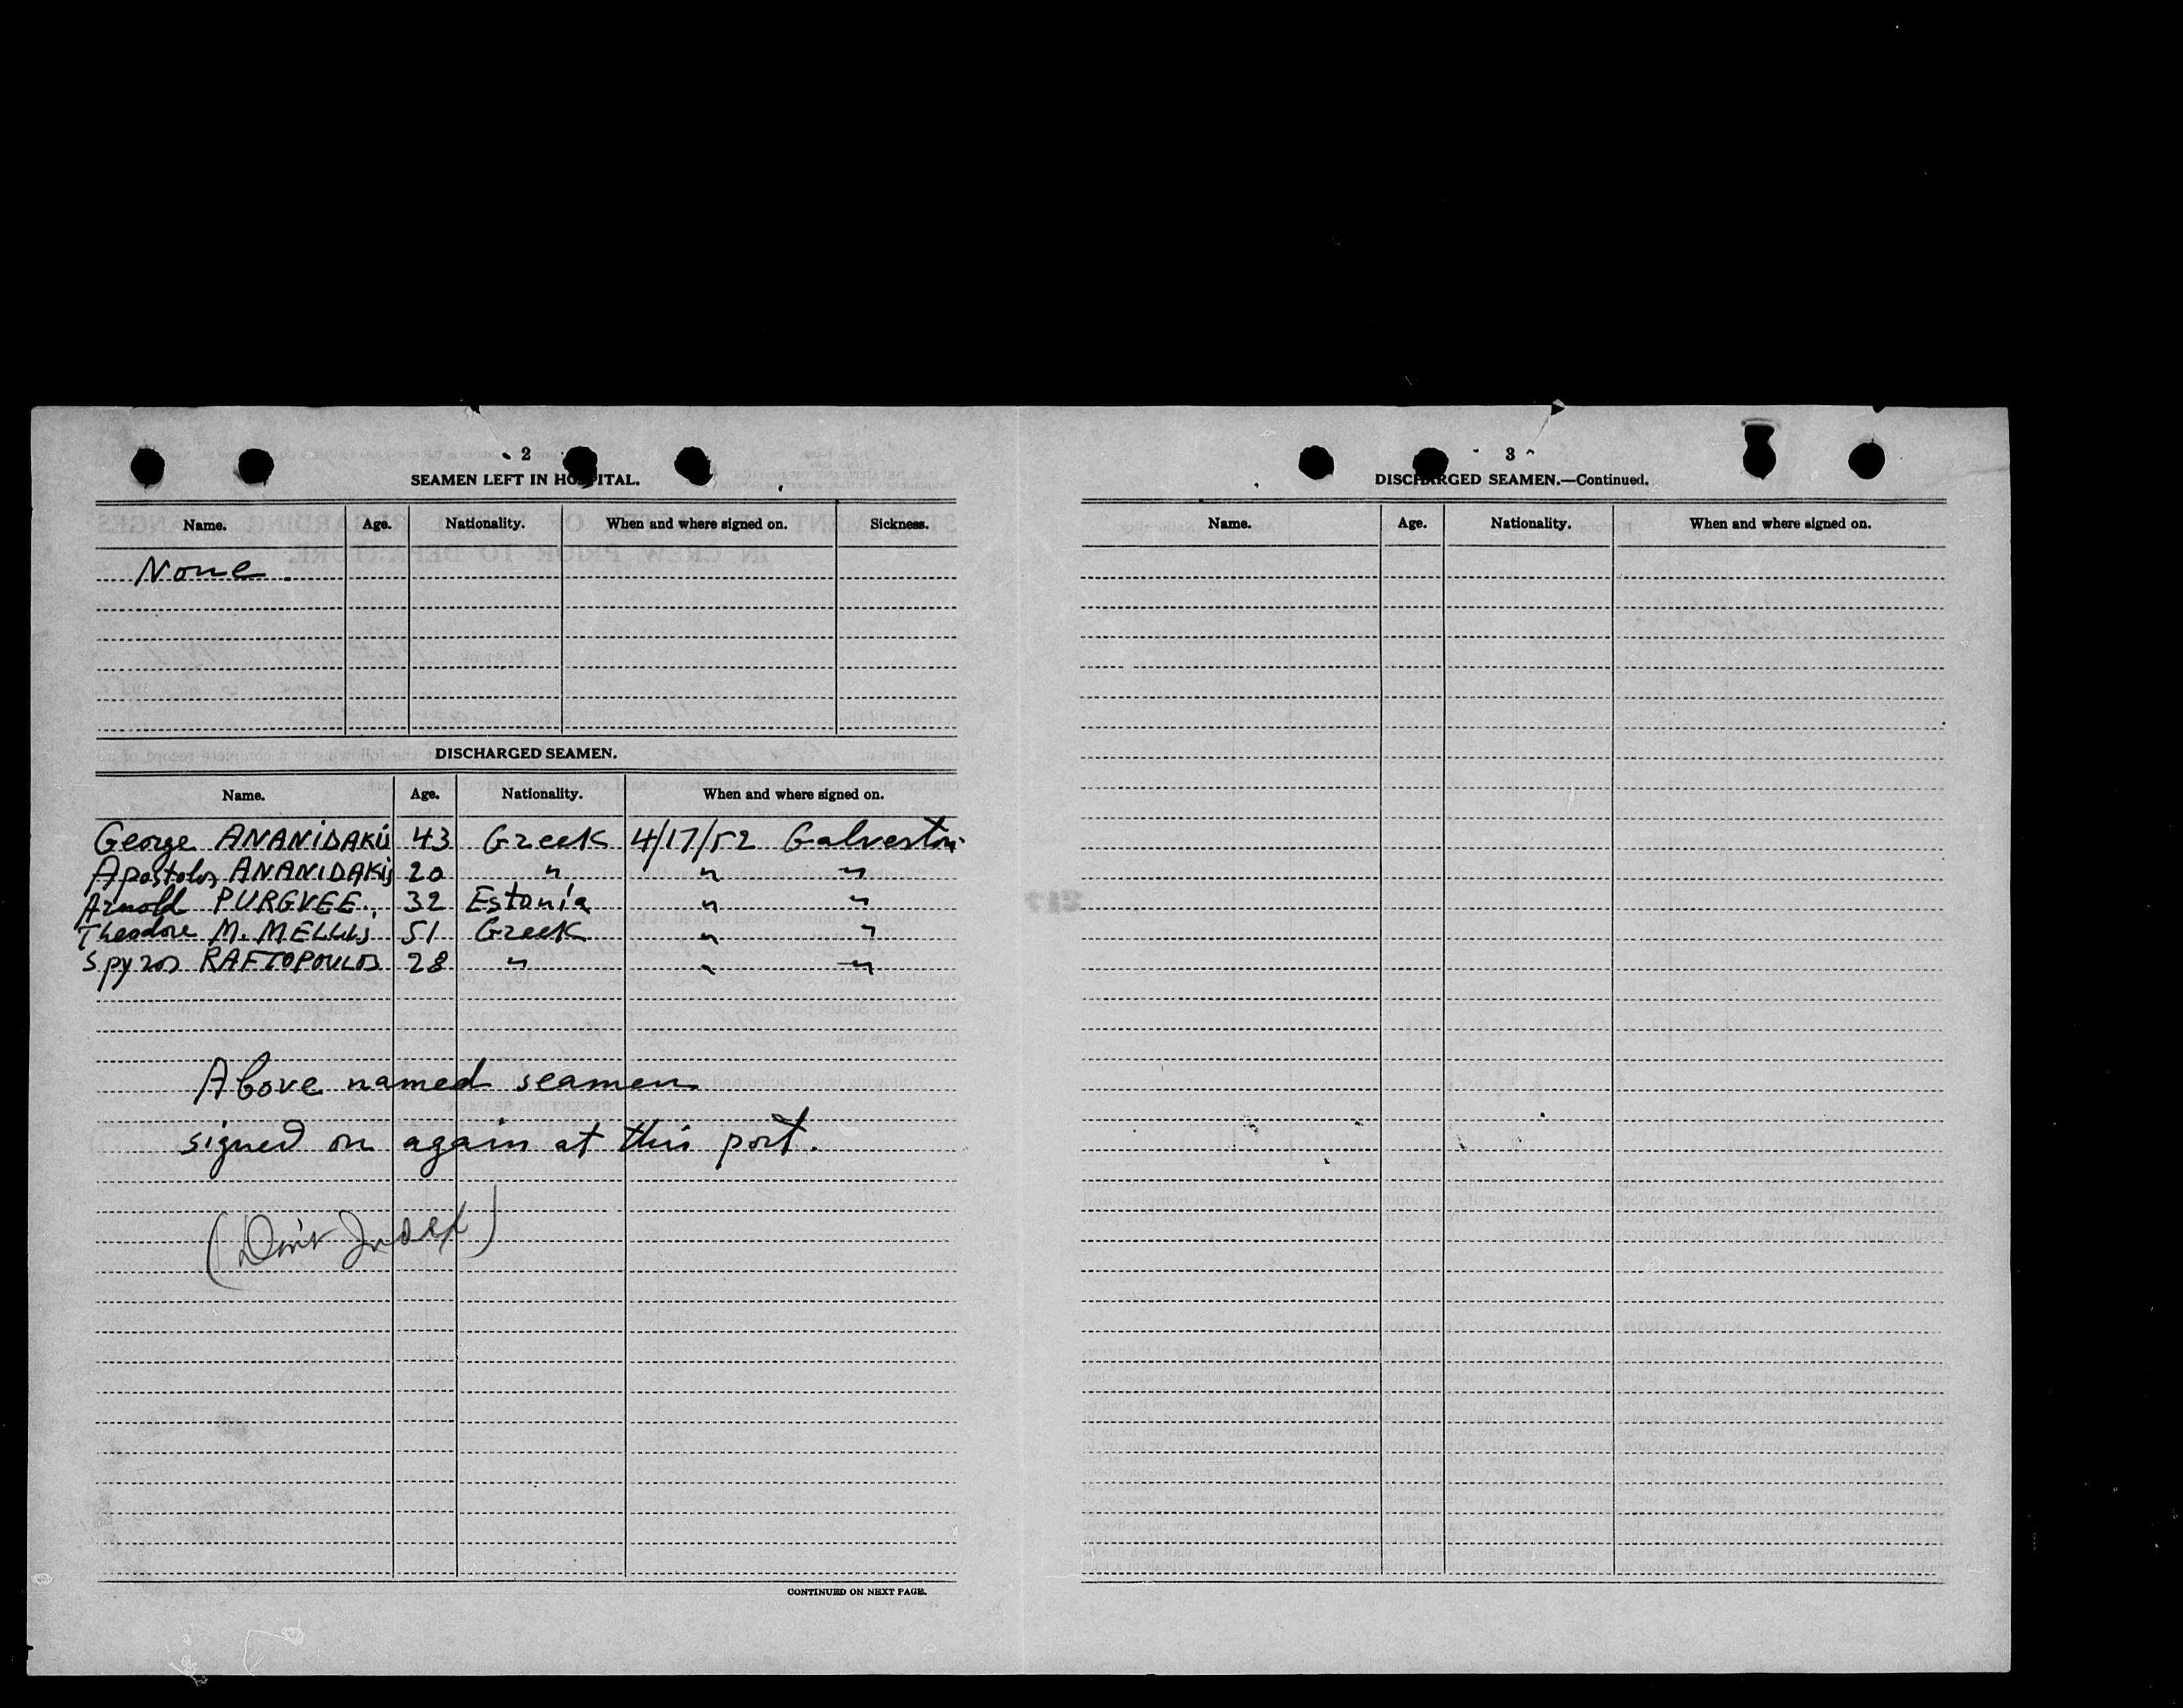 2
SEAMEN LEFT IN HOSPITAL.
Name. Age. Nationality. When and where signed on. Sickness.
None.
DISCHARGED SEAMEN.
Name. Age. Nationality. When and where signed on.
George ANANiDAKiS 43 Greek 4/17/52 Galveston
Apostolos ANANIDAKiS 20 " " "
Arnold PURGVEE. 32 Estonia " "
Theodore M. MELLIS 51 Greek " "
Spyros RAFTOPOULOS 28 " " "
Above named seamen
signed on again at this port.
(Don't Index)
CONTINUED ON NEXT PAGE.
3
DISCHARGED SEAMEN.—Continued.
Name. Age. Nationality. When and where signed on.